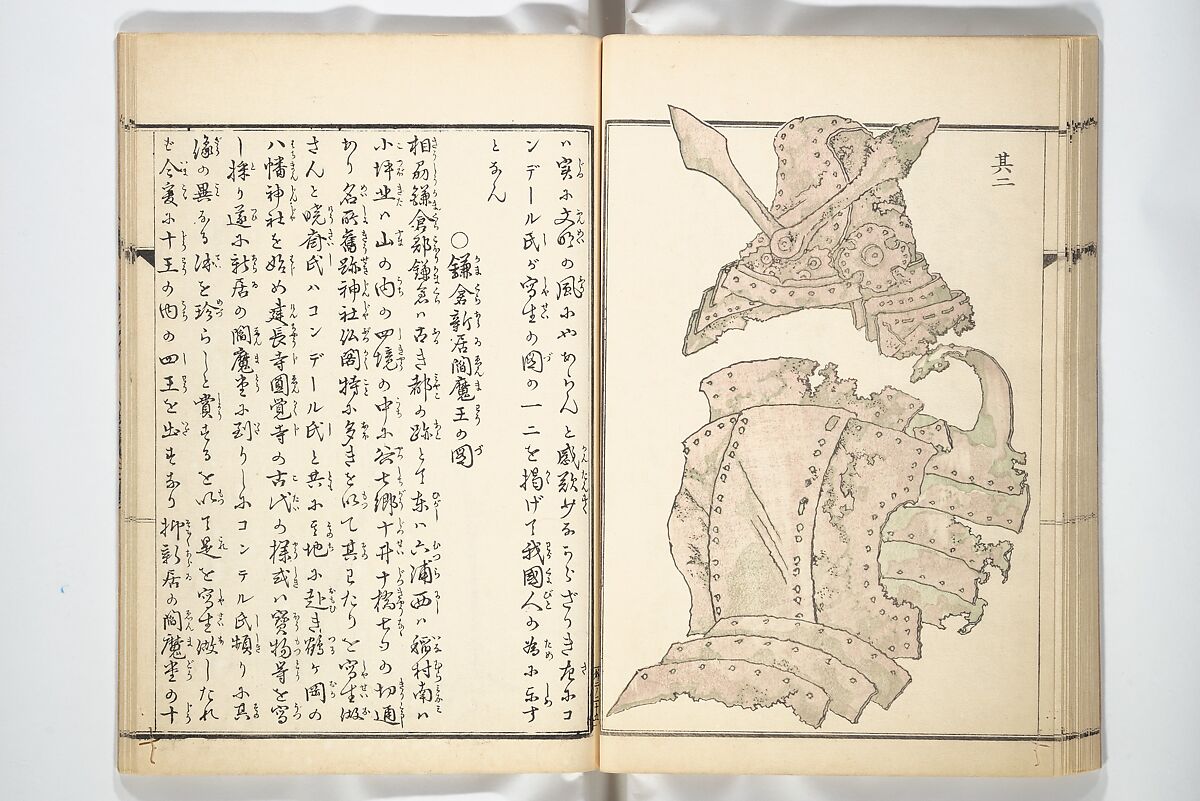 其二
ハ実に文明の風にやあらんと感歎少なからざりき左にコ
ンデール氏が写生の図の一二を掲げて我國人の為に示す
となん
○鎌倉新居閻魔王の図
相州鎌倉郡鎌倉ハ古き都の跡にて東ハ六浦西ハ稲村南ハ
小坪北ハ山の内の四境の中に谷七郷十井十橋七口の切通
あり名所舊跡神社仏閣特に多きを以て其わたりを写生做
さんと暁斎氏ハコンデール氏と共に其地に赴き鶴ヶ岡の
八幡神社を始め建長寺圓覚寺の古代の様式ハ寳物等を写
し採り遂に新居の閻魔堂に到りしにコンテル氏頻りに其
像の異なる体を珍らしと賞するを以て是を写生做したれ
ども今爰に十王の内の四王を出すなり抑新居の閻魔堂の十